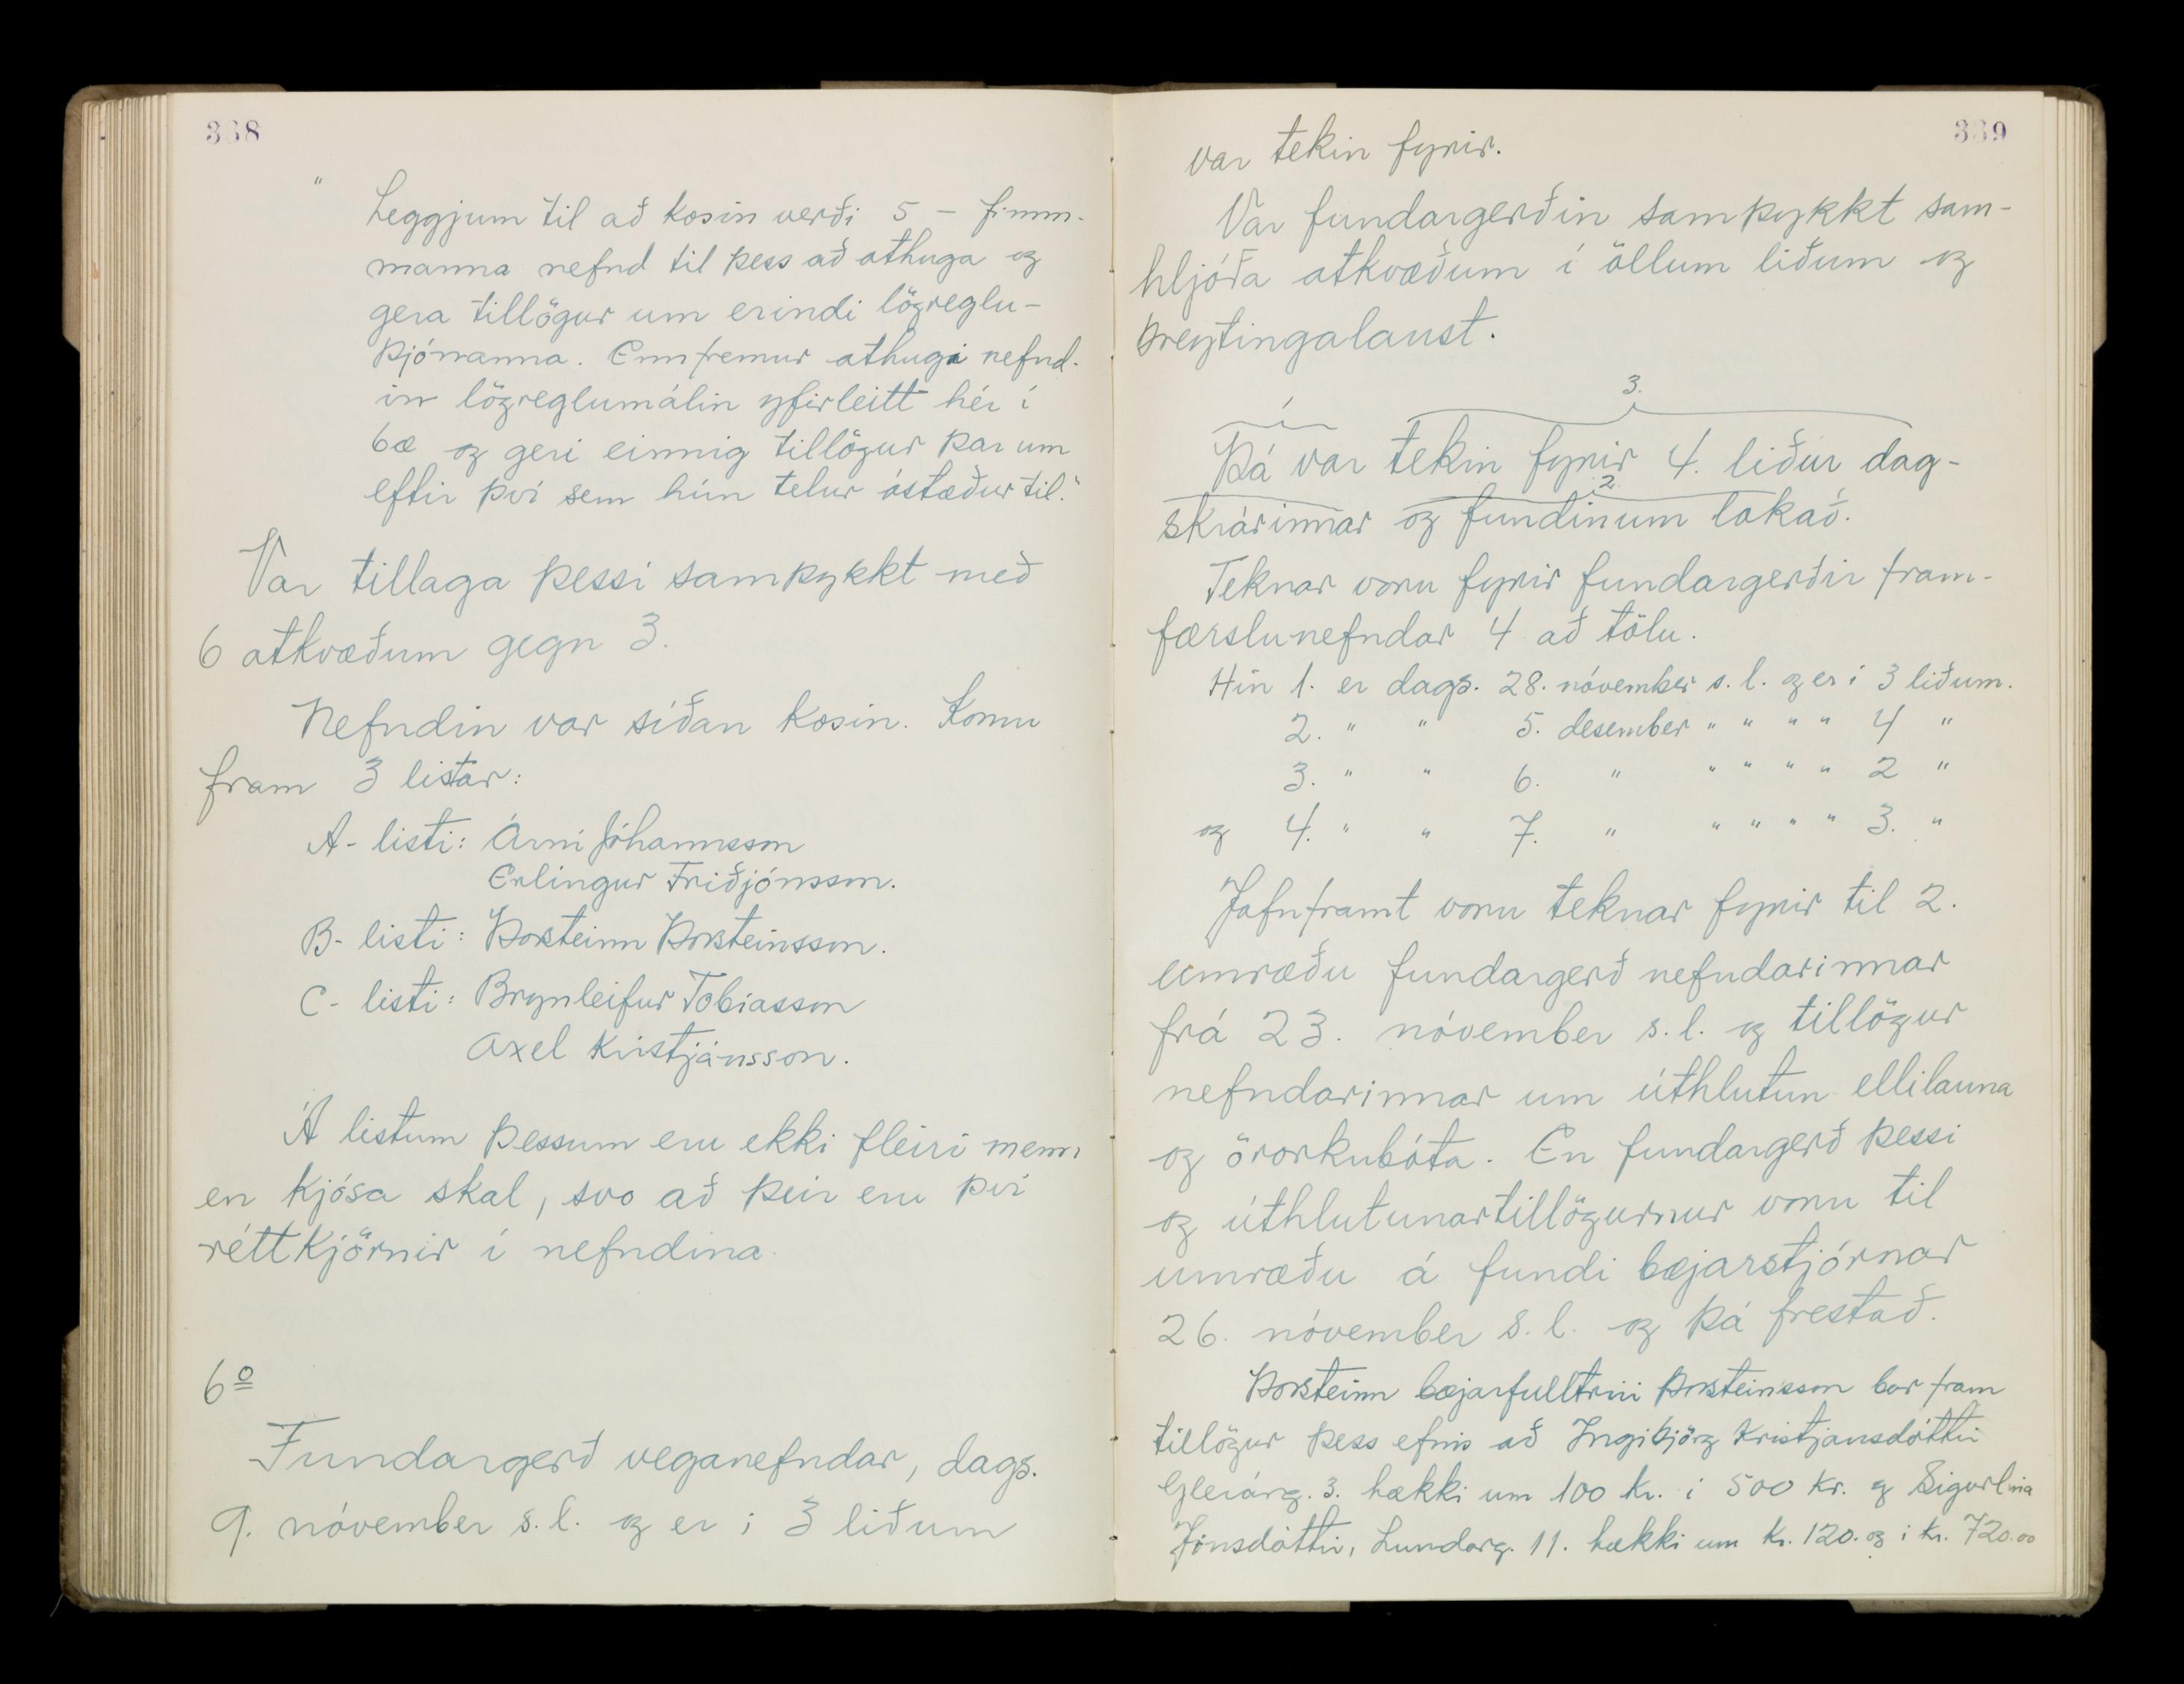 338
" Leggjum til að kosin verði 5 - fimm-
manna nefnd til þess að athuga og
gera tillögur um erindi lögreglu-
þjónanna. Ennfremur athugi nefnd-
in lögreglumálin yfirleitt hér í
bæ og geri einnig tillögur þar um
eftir því sem hún telur ástæður til."
Var tillaga þessi samþykkt með
6 atkvæðum gegn 3.
Nefndin var síðan kosin. Komu
fram 3 listar:
A- listi: Árni Jóhannsson
Erlingur Friðjónsson.
B- listi: Þorsteinn Þorsteinsson.
C- listi: Brynleifur Tobiasson
Axel Kristjánsson.
Á listum þessum eru ekki fleiri menn
en kjósa skal, svo að þeir eru því
réttkjörnir í nefndina.
6º
Fundargerð veganefndar, dags.
9. nóvember s.l. og er í 3 liðum
339
var tekin fyrir.
Var fundargerðin samþykkt sam-
hljóða atkvæðum í öllum liðum og
breytingalaust.
1 3.
Þá var tekin fyrir 4. liður dag-
2.
skrárinnar og fundinum lokað.
Teknar voru fyrir fundargerðir fram-
færslunefndar 4 að tölu.
Hin 1. er dags. 28. nóvember s.l. og er í 3 liðum.
2. " " 5. desember " " " " 4 "
3. " " 6. " " " " " 2 "
og 4. " " 7. " " " " " 3. "
Jafnframt voru teknar fyrir til 2.
umræðu fundargerð nefndarinnar
frá 23. nóvember s.l. og tillögur
nefndarinnar um úthlutun ellilauna
og örorkubóta. En fundargerð þessi
og úthlutunartillögurnur voru til
umræðu á fundi bæjarstjórnar
26. nóvember s.l. og þá frestað.
Þorsteinn bæjarfulltrúi Þorsteinsson bar fram
tillögur þess efnis að Ingibjörg Kristjansdóttir
Glerárg. 3. hækki um 100 kr. í 500 kr. og Sigurlína
Jónsdóttir, Lundarg. 11. hækki um kr. 120. og í kr. 720.00